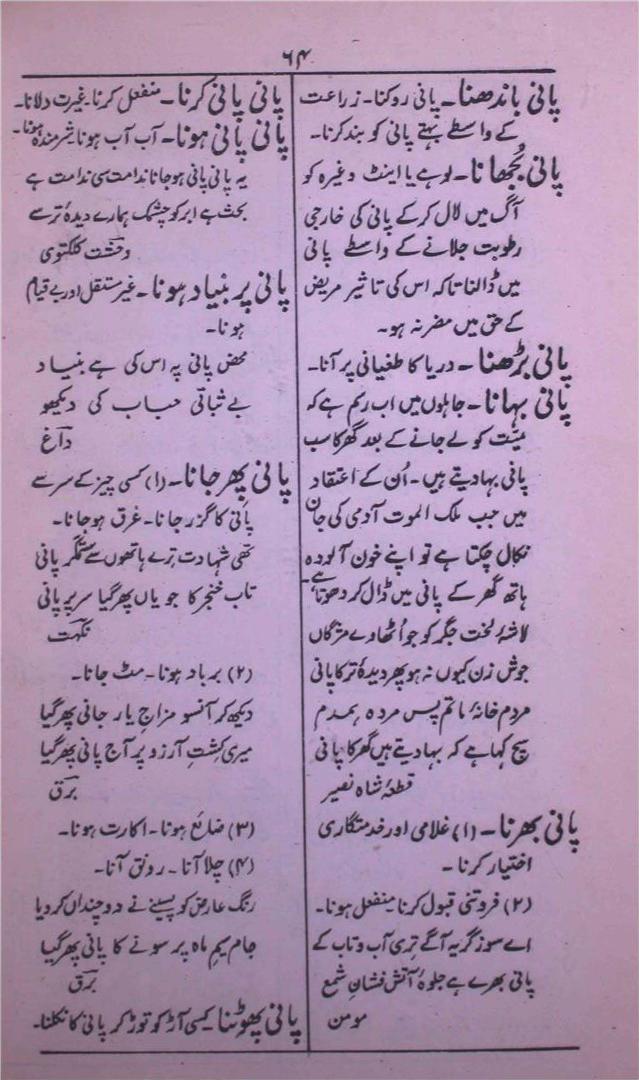 ۶۴
پانی باندھنا۔ پانی روکنا۔ زراعت
کے واسطے بہتے پانی کو بند کرنا۔
پانی بُجھانا۔ لوہے یا اینٹ وغیرہ کو
آگ میں لال کر کے پانی کی خارجی
رطوبت جلانے کے واسطے پانی
میں ڈالنا تاکہ اس کی تاثیر مریض
کے حق میں مضر نہ ہو۔
پانی بڑھنا۔ دریا کا طغیانی پر آنا۔
پانی بہانا۔ جاہلوں میں اب رسم ہے کہ
میّت کو لے جانے کے بعد گھر کا سب
پانی بہا دیتے ہیں۔ اُن کے اعتقاد
میں جب ملک الموت آدمی کی جان
نکال چکتا ہے تو اپنے خون آلودہ
ہاتھ گھر کے پانی میں ڈال کر دھوتا ہے۔
لاشۂ لخت جگر کو جو اُٹھاوے مژگاں
جوش زن کیوں نہ ہو پھر دیدۂ تر کا پانی
مردم خانۂ ماتم پس مردہ ہمدم
سچ کہا ہے کہ بہا دیتے ہیں گھر کا پانی
قطعۂ شاہ نصیر
پانی بھرنا۔ (۱) غلامی اور خدمتگاری
اختیار کرنا۔
(۲) فروتنی قبول کرنا۔ منفعل ہونا۔
اے سوز گریہ آگے تری آب و تاب کے
پانی بھرے ہے جلوۂ آتش فشانِ شمع
مومن
پانی پانی کرنا۔ منفعل کرنا۔ غیرت دلانا۔
پانی پانی ہونا۔ آب آب ہونا شرمندہ ہونا۔
یہ پانی پانی ہو جانا ندامت سی ندامت ہے
بحث ہے ابر کو چشمک ہمارے دیدۂ تر سے
وحشت کلکتوی
پانی پر بنیاد ہونا۔ غیر مستقل اور بے قیام
ہونا۔
محض پانی پہ اس کی ہے بنیاد
بے ثباتی حباب کی دیکھو
داغ
پانی پھر جانا۔ (۱) کسی چیز کے سر سے
پانی کا گزر جانا۔ غرق ہو جانا۔
تھی شہادت ترے ہاتھوں سے ستمگر پانی
تاب خنجر کا جو یاں پھر گیا سر پر پانی
نکہت
(۲) برباد ہونا۔ مٹ جانا۔
دیکھ کر آنسو مزاج یار جانی پھر گیا
میری کِشتِ آرزو پر آج پانی پھر گیا
برق
(۳) ضائع ہونا۔ اکارت ہونا۔
(۴) جِلا آنا۔ رونق آنا۔
رنگ عارض کو پسینے نے دو چنداں کر دیا
جام سیم ماہ پر سونے کا پانی پھر گیا
برق
پانی پھوٹنا کسی آڑ کو توڑ کر پانی کا نکلنا۔